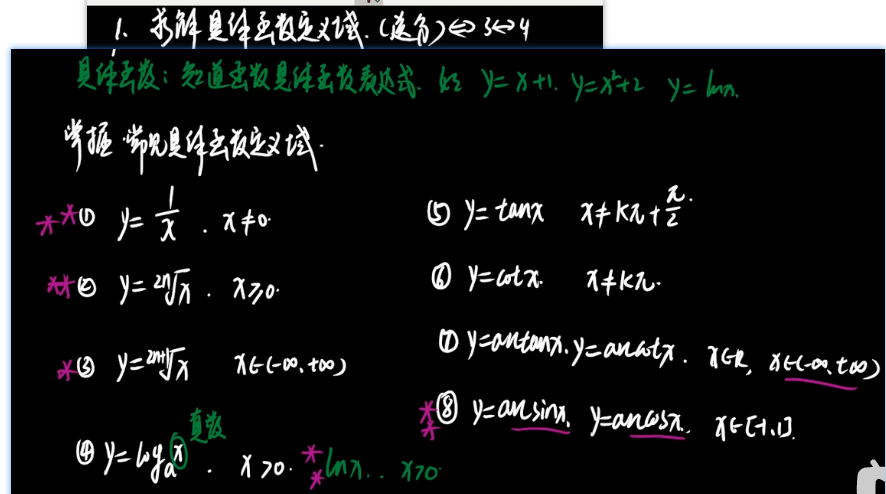 1. 求解具体函数定义域.(送分)⇔3↔4
具体函数:知道函数具体函数表达式. 如 y=x+1. y=x²+2 y=lnx.
掌握 常见具体函数定义域.
**① y=1/x . x≠0.
**② y=2n√x . x≥0.
*③ y=2n+1√x x∈(-∞,+∞)
④ y=logₐx 真数 . x>0. ** lnx.. x>0
⑤ y=tanx x≠kπ+π/2.
⑥ y=cotx. x≠kπ.
⑦ y=arctanx. y=arccotx. x∈R, x∈(-∞,+∞)
**⑧ y=arcsinx. y=arccosx. x∈[-1,1].